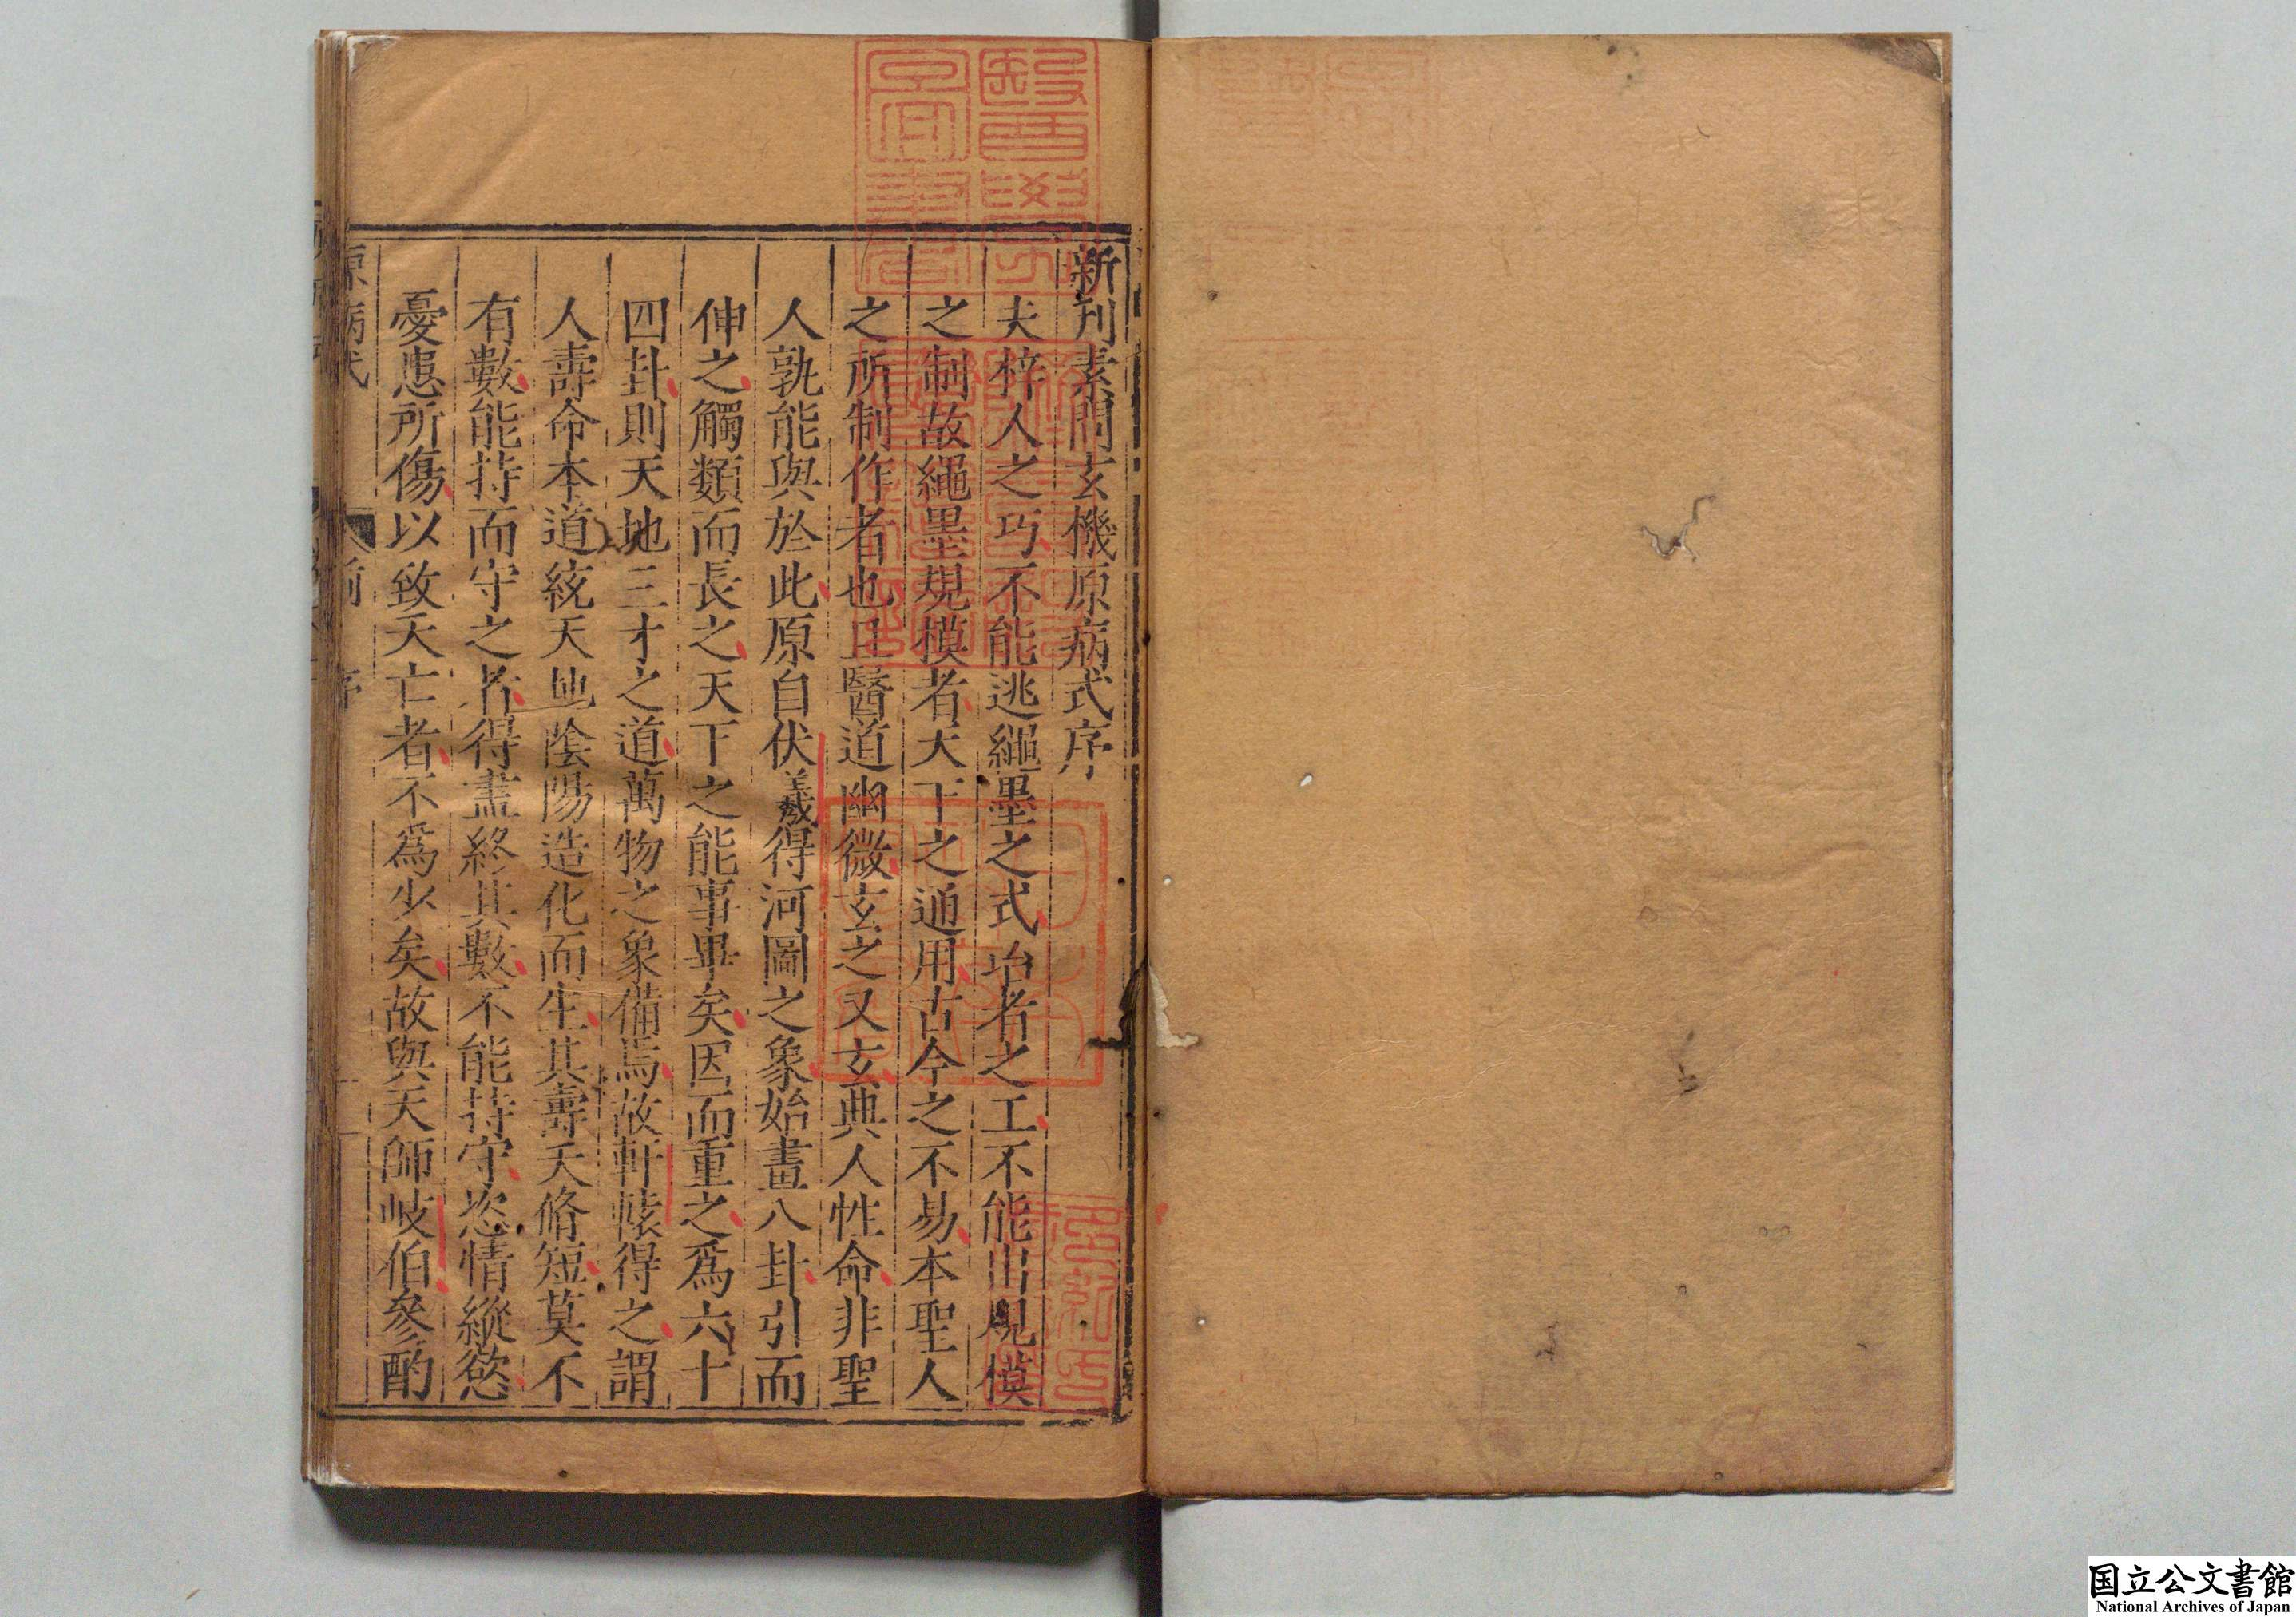 新刊素問玄機原病式序
夫梓人之巧不能逃繩墨之式冶者之工不能出規模
之制故繩墨規模者天下之通用古今之不易本聖人
之所制作者也且醫道幽微玄之又玄典人性命非聖
人孰能與於此原自伏羲得河圖之象始畫八卦引而
伸之觸類而長之天下之能事畢矣因而重之爲六十
四卦則天地三才之道萬物之象備焉故軒轅得之謂
人壽命本道統天地陰陽造化而生其壽夭脩短莫不
有數能持而守之者得盡終其數不能持守恣情縱慾
憂患所傷以致夭亡者不爲少矣故與天師岐伯參酌
原病式 前序
醫學圖書
国立公文書館
National Archives of Japan